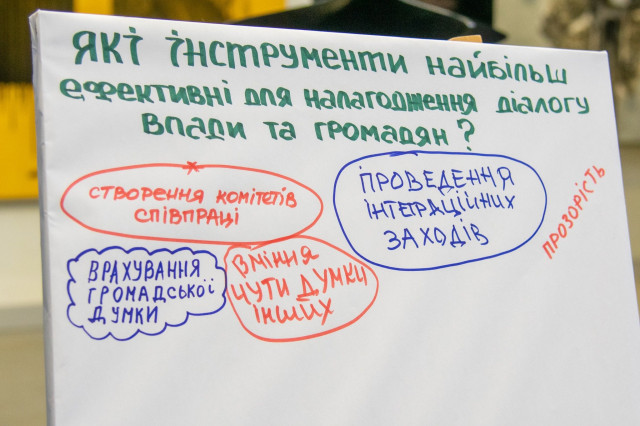 ЯКІ ІНСТРУМЕНТИ НАЙБІЛЬШ
ЕФЕКТИВНІ ДЛЯ НАЛАГОДЖЕННЯ ДІАЛОГУ
ВЛАДИ ТА ГРОМАДЯН?
СТВОРЕННЯ КОМІТЕТІВ
СПІВПРАЦІ
ПРОВЕДЕННЯ
ІНТЕГРАЦІЙНИХ
ЗАХОДІВ
ПРОЗОРІСТЬ
ВРАХУВАННЯ
ГРОМАДСЬКОЇ
ДУМКИ
ВМІННЯ
ЧУТИ ДУМКИ
ІНШИХ